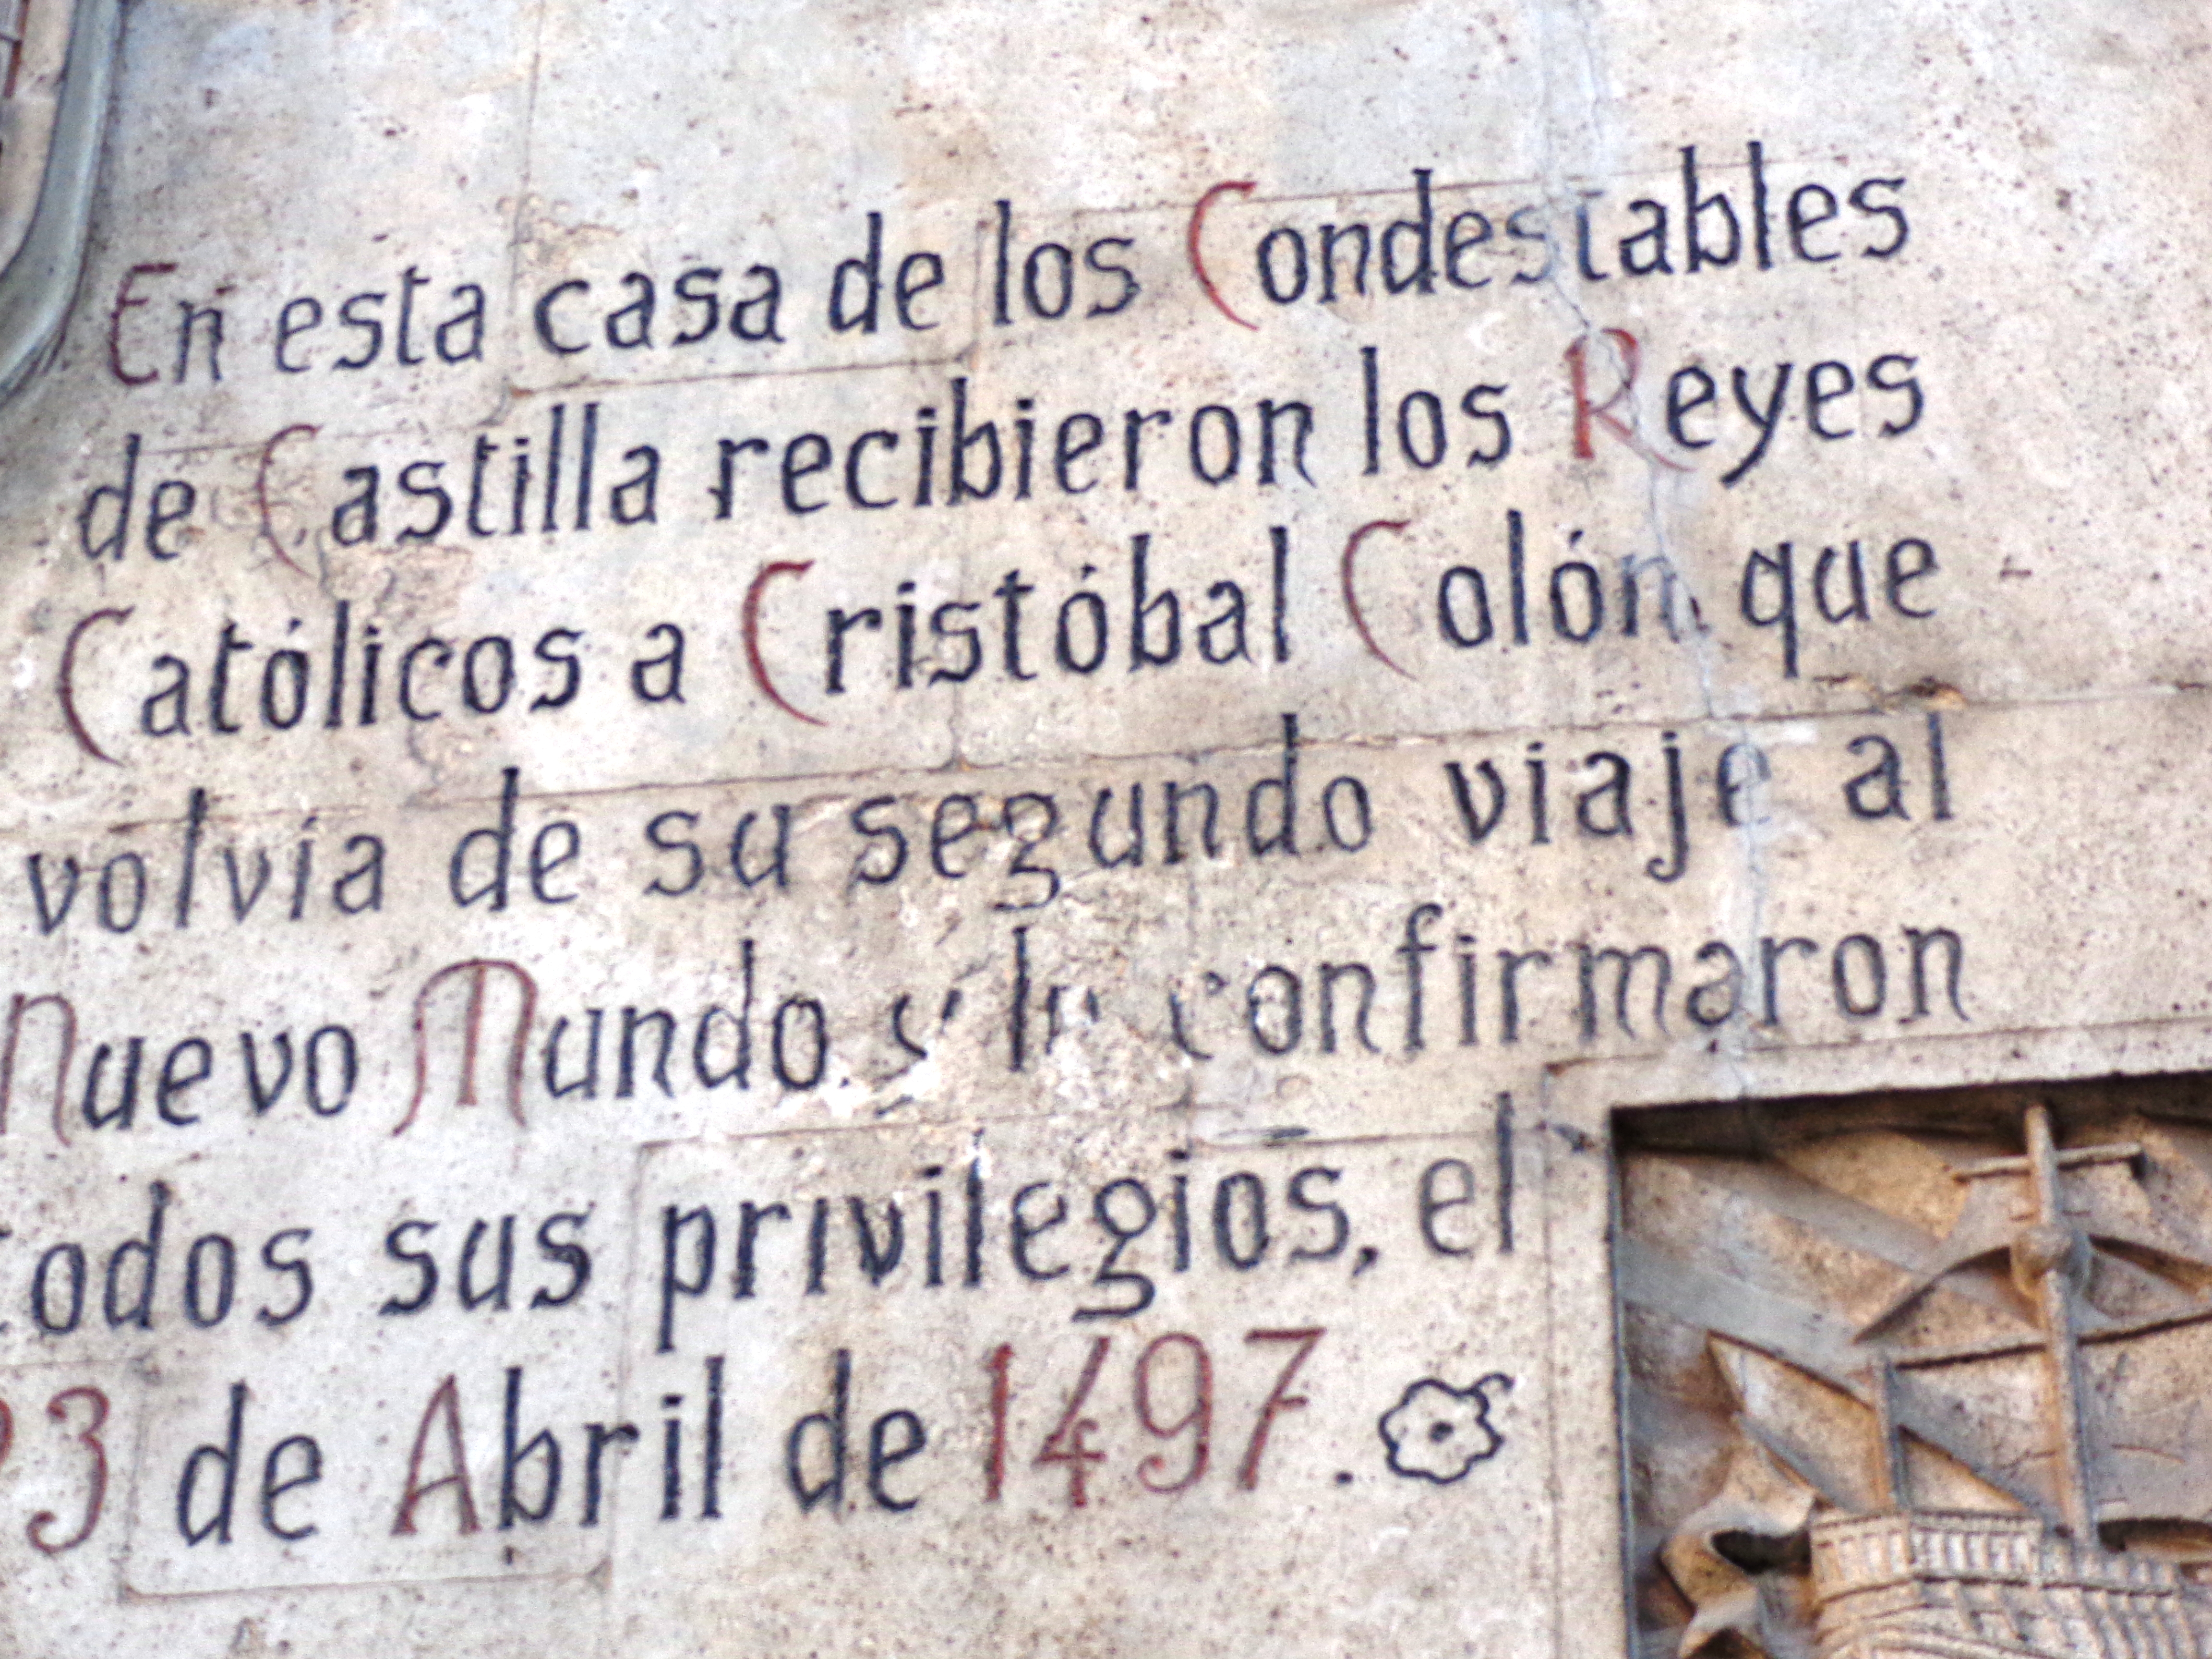 En esta casa de los Condestables
de Castilla recibieron los Reyes
Católicos a Cristóbal Colón que
volvía de su segundo viaje al
Nuevo Mundo y confirmaron
todos sus privilegios, el
23 de Abril de 1497.